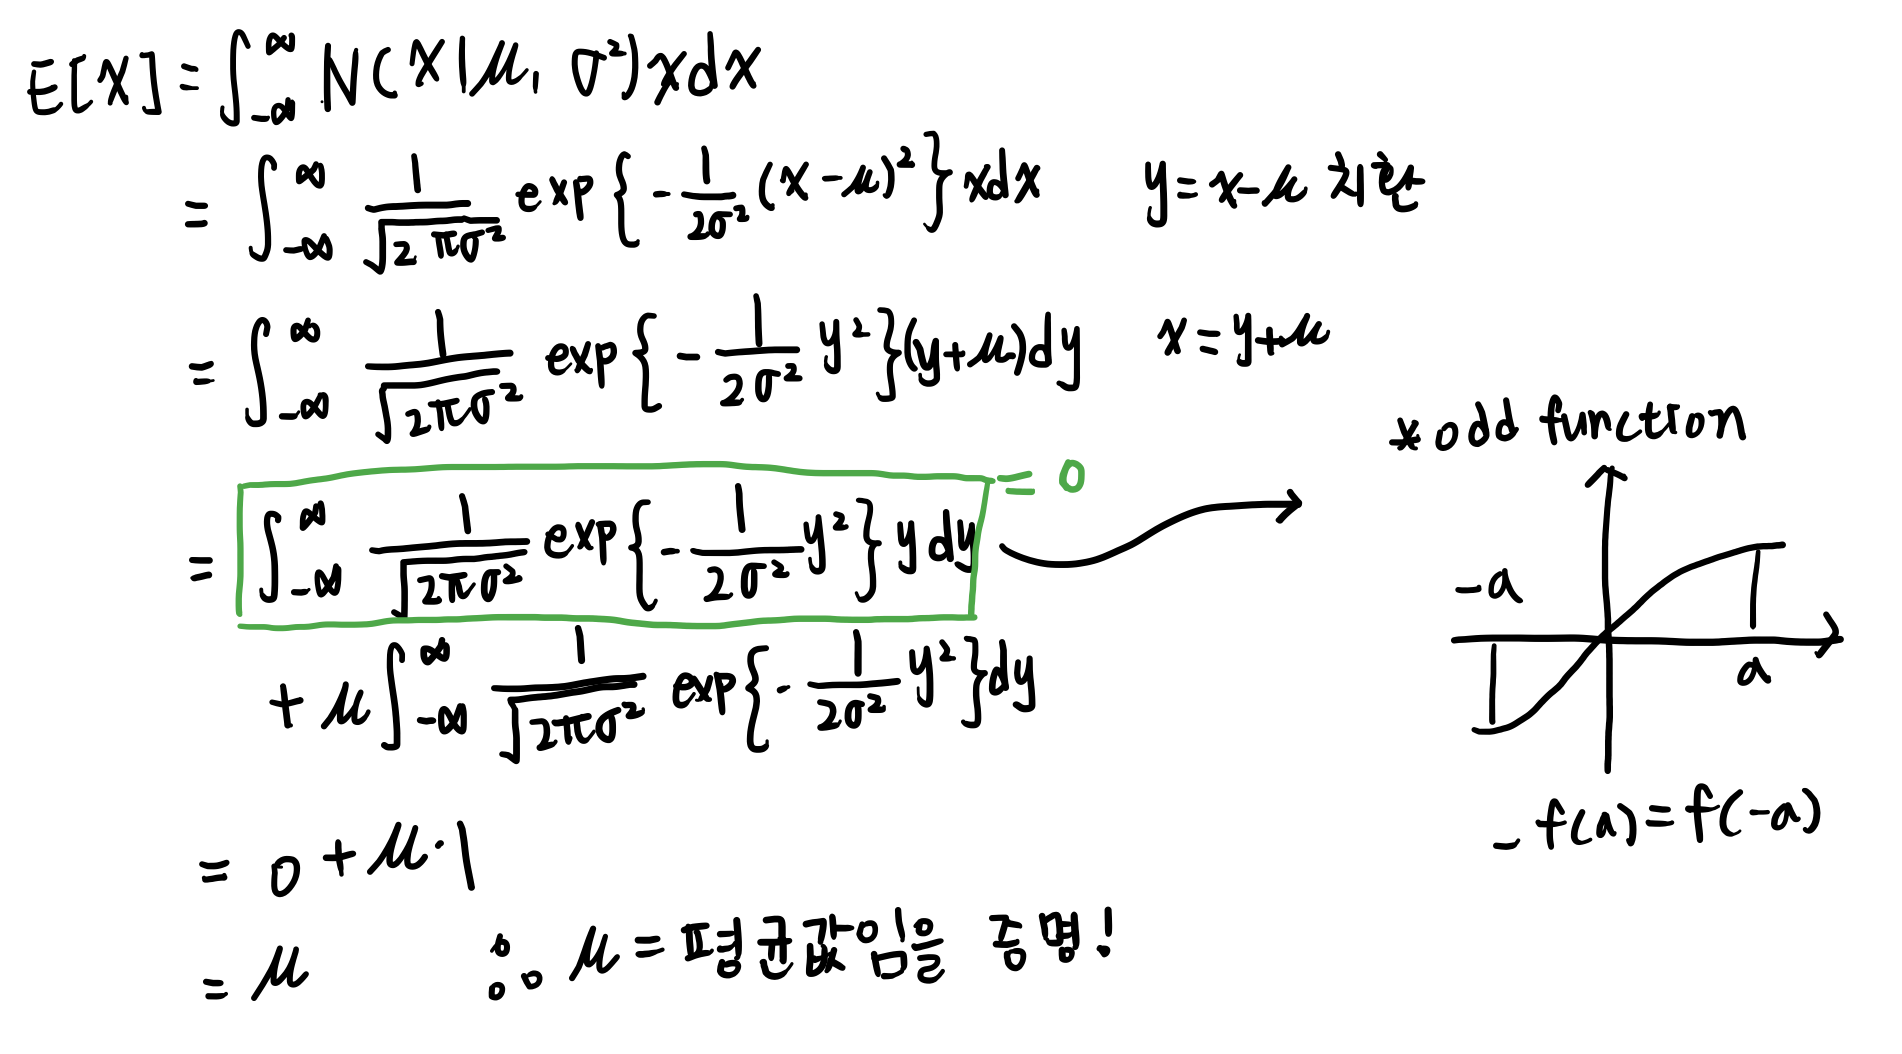 E[X] = ∫_{-∞}^{∞} N(x|μ, σ²) x dx
= ∫_{-∞}^{∞} 1/√(2πσ²) exp{ -1/(2σ²) (x-μ)² } x dx    y = x-μ 치환
= ∫_{-∞}^{∞} 1/√(2πσ²) exp{ -1/(2σ²) y² } (y+μ) dy    x = y+μ
= ∫_{-∞}^{∞} 1/√(2πσ²) exp{ -1/(2σ²) y² } y dy = 0
+ μ ∫_{-∞}^{∞} 1/√(2πσ²) exp{ -1/(2σ²) y² } dy
= 0 + μ·1
= μ    ∴ μ = 평균값임을 증명!
* odd function
-a
a
-f(a) = f(-a)